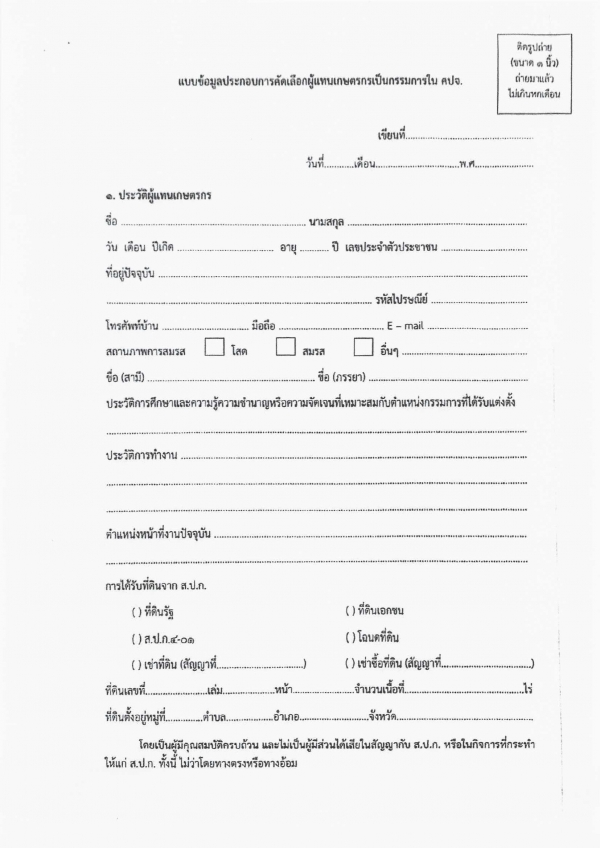 ติดรูปถ่าย
(ขนาด ๑ นิ้ว)
ถ่ายมาแล้ว
ไม่เกินหกเดือน
แบบข้อมูลประกอบการคัดเลือกผู้แทนเกษตรกรเป็นกรรมการใน คปจ.
เขียนที่..........................................
วันที่..........เดือน..........................พ.ศ....................
๑. ประวัติผู้แทนเกษตรกร
ชื่อ .......................................................... นามสกุล ..........................................................
วัน เดือน ปีเกิด ................................ อายุ .......... ปี เลขประจำตัวประชาชน .............................
ที่อยู่ปัจจุบัน ....................................................................................................................
.......................................................................................... รหัสไปรษณีย์ ................................
โทรศัพท์บ้าน ............................. มือถือ ................................... E – mail ..................................
สถานภาพการสมรส ☐ โสด ☐ สมรส ☐ อื่นๆ ..........................................
ชื่อ (สามี) .......................................................... ชื่อ (ภรรยา) .....................................................
ประวัติการศึกษาและความรู้ความชำนาญหรือความจัดเจนที่เหมาะสมกับตำแหน่งกรรมการที่ได้รับแต่งตั้ง
..............................................................................................................................................
ประวัติการทำงาน ..................................................................................................................
..............................................................................................................................................
..............................................................................................................................................
ตำแหน่งหน้าที่งานปัจจุบัน ........................................................................................................
..............................................................................................................................................
การได้รับที่ดินจาก ส.ป.ก.
( ) ที่ดินรัฐ ( ) ที่ดินเอกชน
( ) ส.ป.ก.๔-๐๑ ( ) โฉนดที่ดิน
( ) เช่าที่ดิน (สัญญาที่.............................) ( ) เช่าซื้อที่ดิน (สัญญาที่..............................)
ที่ดินเลขที่....................เล่ม...............หน้า....................จำนวนเนื้อที่........................................ไร่
ที่ดินตั้งอยู่หมู่ที่.............ตำบล................อำเภอ.......................จังหวัด.......................................................
โดยเป็นผู้มีคุณสมบัติครบถ้วน และไม่เป็นผู้มีส่วนได้เสียในสัญญากับ ส.ป.ก. หรือในกิจการที่กระทำ
ให้แก่ ส.ป.ก. ทั้งนี้ ไม่ว่าโดยทางตรงหรือทางอ้อม